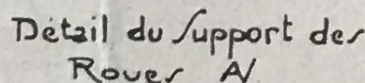 Détail du Support des
Roues AV